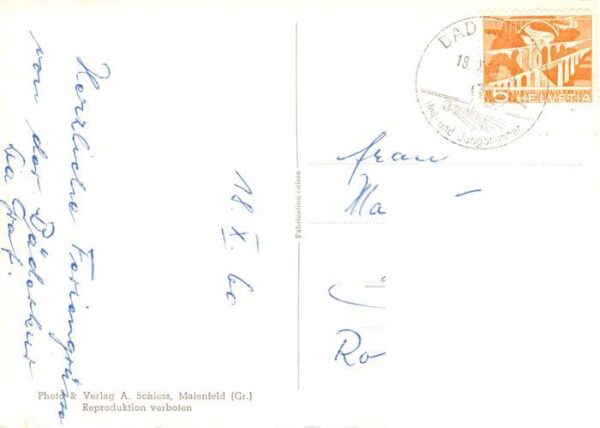 Herzliche Feriengrüsse
von der Bäderkur
Ida Graf.
18. X. 60
Frau
Ma
Ro
BAD
18. X.
Heil- und Jungbrunnen
5 HELVETIA
Fabrication suisse
Photo & Verlag A. Schiess, Maienfeld (Gr.)
Reproduktion verboten